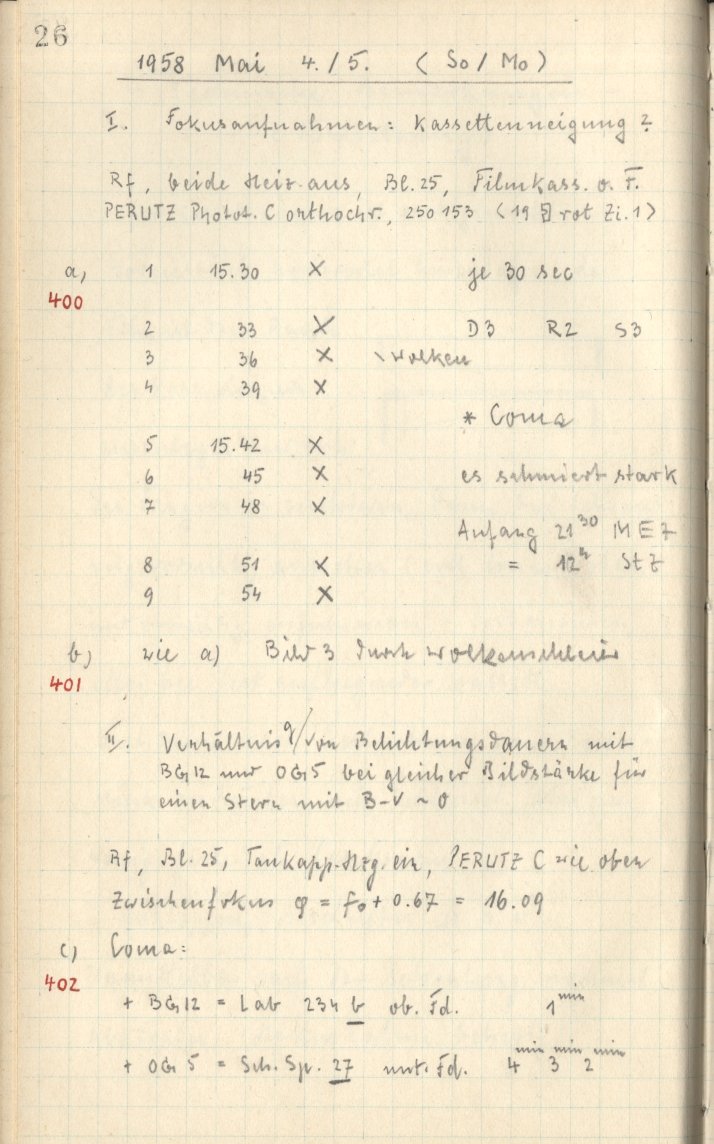 26
1958 Mai 4./5. (So/Mo)
I. Fokusaufnahmen: Kassettenneigung?
Rf, beide Heiz. aus, Bl. 25, Filmkass. o. F.
PERUTZ Photot. C orthochr., 250153 (19 rot Zi. 1)
a, 1 15.30 × je 30 sec
400
2 33 × D3 R2 S3
3 36 × \ Wolken
4 39 ×
* Coma
5 15.42 ×
6 45 × es schmiert stark
7 48 ×
Anfang 21³⁰ MEZ
8 51 × = 12ʰ StZ
9 54 ×
b) wie a) Bild 3 durch Wolkenschleier
401
II. Verhältnis q/von Belichtungsdauern mit
BG12 und OG5 bei gleicher Bildstärke für
einen Stern mit B-V ~ 0
Rf, Bl. 25, Taukapp.-Hzg. ein, PERUTZ C wie oben
Zwischenfokus φ = f₀ + 0.67 = 16.09
c) Coma:
402
+ BG12 = Lab 234 b ob. Fd. 1 min
+ OG5 = Sch. Sp. 27 unt. Fd. 4 min 3 min 2 min